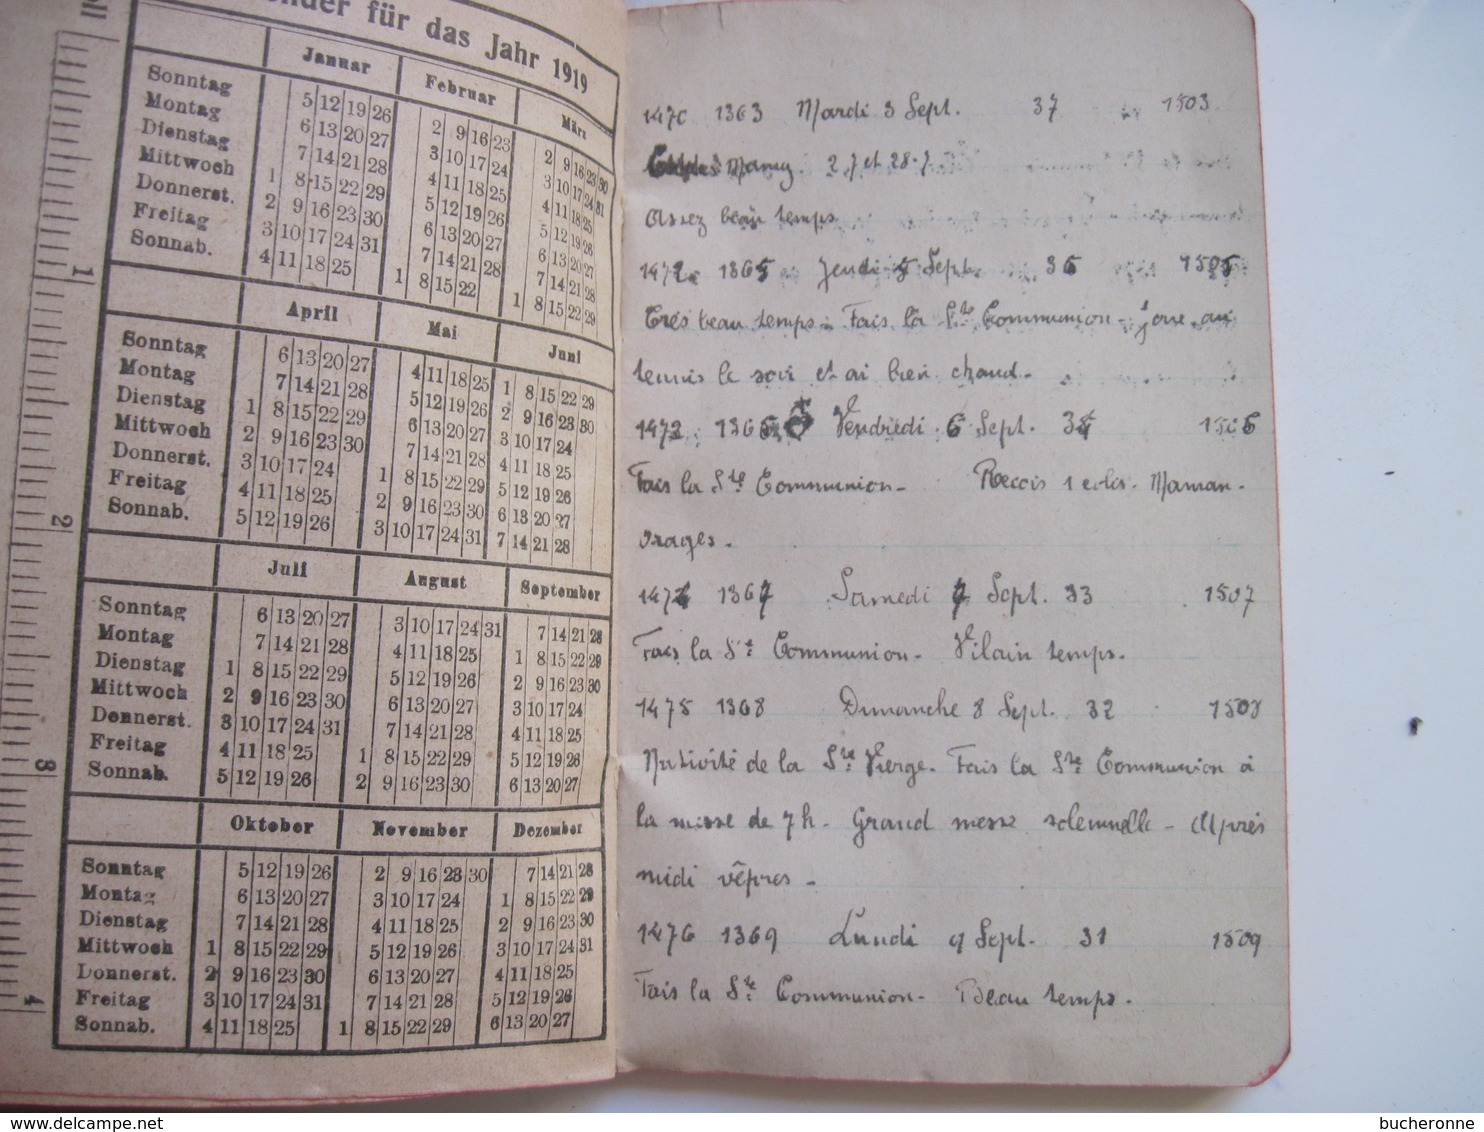 für das Jahr 1919
Januar Februar März
Sonntag 5 12 19 26 2 9 16 23 2 9 16 23 30
Montag 6 13 20 27 3 10 17 24 3 10 17 24 31
Dienstag 7 14 21 28 4 11 18 25 4 11 18 25
Mittwoch 1 8 15 22 29 5 12 19 26 5 12 19 26
Donnerst. 2 9 16 23 30 6 13 20 27 6 13 20 27
Freitag 3 10 17 24 31 7 14 21 28 7 14 21 28
Sonnab. 4 11 18 25 1 8 15 22 1 8 15 22 29
April Mai Juni
Sonntag 6 13 20 27 4 11 18 25 1 8 15 22 29
Montag 7 14 21 28 5 12 19 26 2 9 16 23 30
Dienstag 1 8 15 22 29 6 13 20 27 3 10 17 24
Mittwoch 2 9 16 23 30 7 14 21 28 4 11 18 25
Donnerst. 3 10 17 24 1 8 15 22 29 5 12 19 26
Freitag 4 11 18 25 2 9 16 23 30 6 13 20 27
Sonnab. 5 12 19 26 3 10 17 24 31 7 14 21 28
Juli August September
Sonntag 6 13 20 27 3 10 17 24 31 7 14 21 28
Montag 7 14 21 28 4 11 18 25 1 8 15 22 29
Dienstag 1 8 15 22 29 5 12 19 26 2 9 16 23 30
Mittwoch 2 9 16 23 30 6 13 20 27 3 10 17 24
Donnerst. 3 10 17 24 31 7 14 21 28 4 11 18 25
Freitag 4 11 18 25 1 8 15 22 29 5 12 19 26
Sonnab. 5 12 19 26 2 9 16 23 30 6 13 20 27
Oktober November Dezember
Sonntag 5 12 19 26 2 9 16 23 30 7 14 21 28
Montag 6 13 20 27 3 10 17 24 1 8 15 22 29
Dienstag 7 14 21 28 4 11 18 25 2 9 16 23 30
Mittwoch 1 8 15 22 29 5 12 19 26 3 10 17 24 31
Donnerst. 2 9 16 23 30 6 13 20 27 4 11 18 25
Freitag 3 10 17 24 31 7 14 21 28 5 12 19 26
Sonnab. 4 11 18 25 1 8 15 22 29 6 13 20 27
1 2 3 4
1470 1363 Mardi 3 Sept. 37 1503
27 et 28.7
Assez beau temps
1472 1365 Jeudi 5 Sept. 1505
Très beau temps - Fais la Ste Communion - Joue au
tennis le soir et ai bien chaud -
1366 Vendredi 6 Sept. 1506
Fais la Ste Communion - Recois 1 colis. Maman -
Orages -
1367 Samedi 7 Sept. 33 1507
Fais la Ste Communion - Vilain temps.
1475 1368 Dimanche 8 Sept. 32 1508
Nativité de la Ste Vierge. Fais la Ste Communion à
la messe de 7h - Grand messe solennelle - Après
midi vêpres -
1476 1369 Lundi 9 Sept. 31 1509
Fais la Ste Communion - Beau temps.
bucheronne